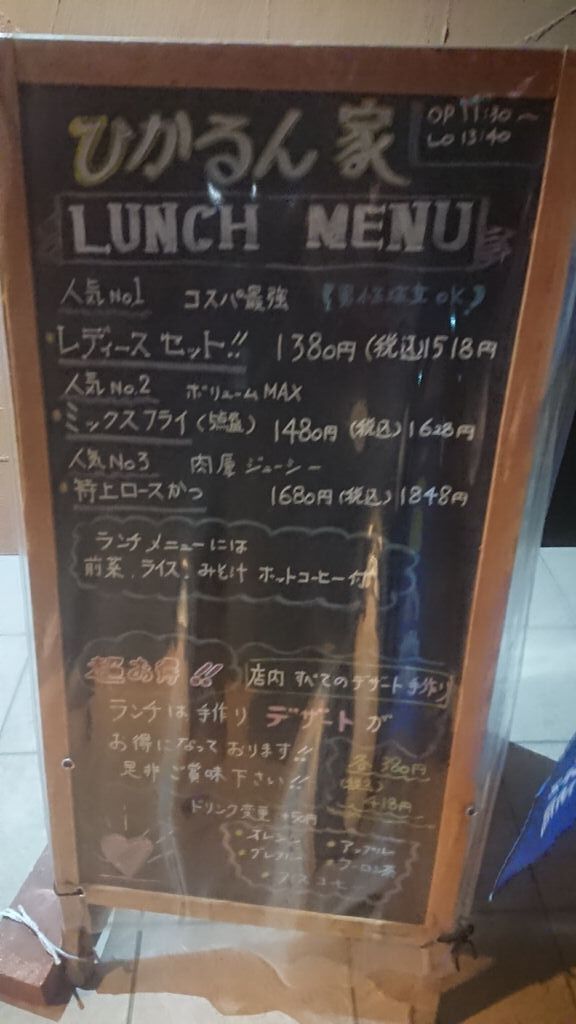 ひかるん家
OP 11:30～
LO 13:40
LUNCH MENU
人気No.1 コスパ最強 OK
・レディースセット!! 1380円(税込)1518円
人気No.2 ボリュームMAX
・ミックスフライ 1480円(税込)1628円
人気No3 肉厚ジューシー
・特上ロースかつ 1680円(税込)1848円
ランチメニューには
前菜、ライス、みそ汁 ホットコーヒー付
超お得!!
店内すべてのデザート手作り
ランチは手作りデザートが
お得になっております!!
是非ご賞味下さい!!
各380円
(税込)
418円
ドリンク変更 +50円
・オレンジ ・アップル
・ウーロン茶